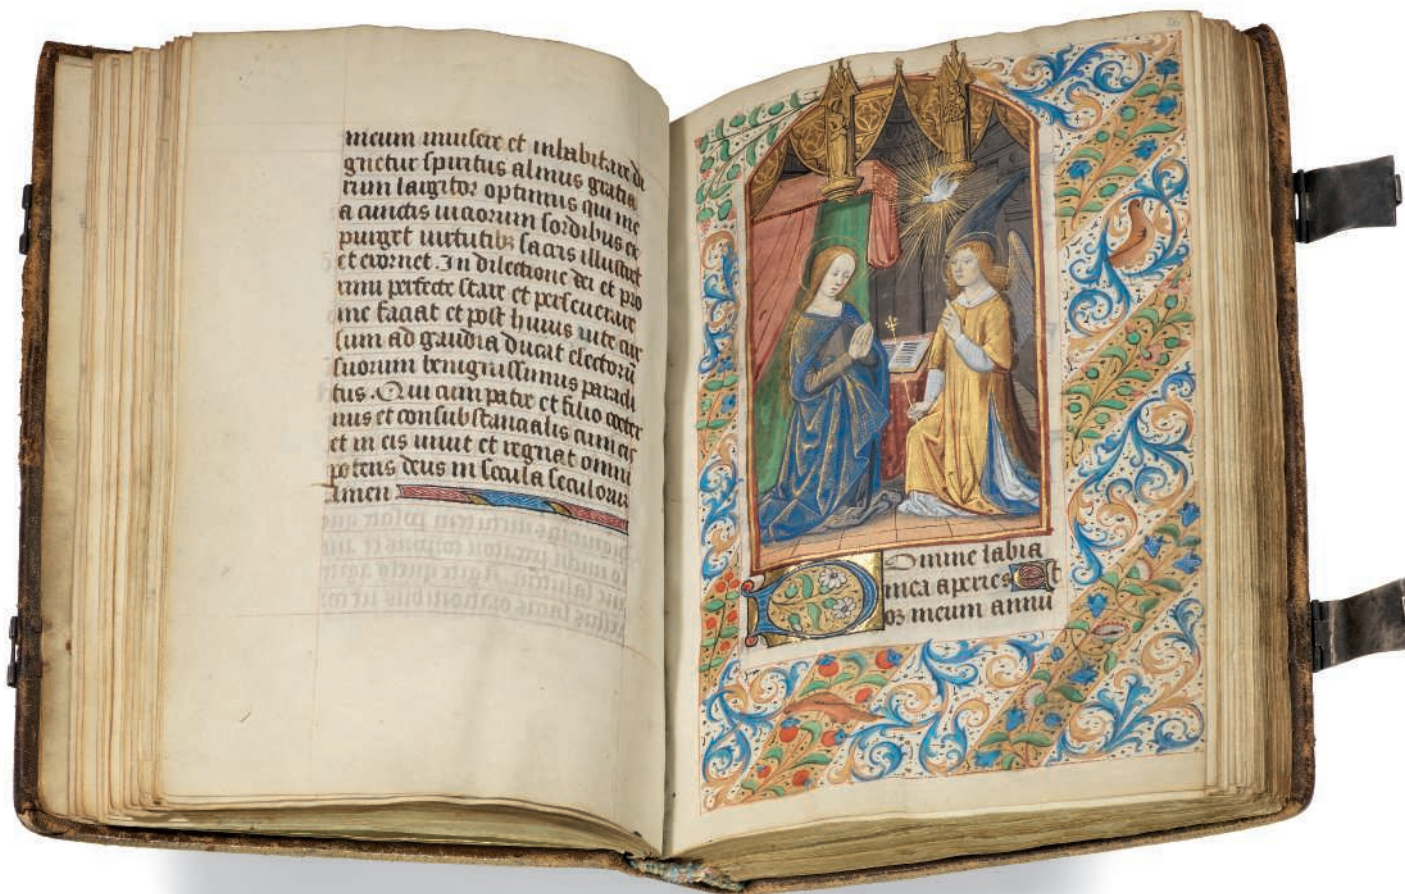 meum inuisere et inhabitare di
gnetur spiritus almus gratia
rum largitor optimus qui me
a cunctis uiciorum sordibus ex
purget uirtutibꝫ sacris illustret
et exornet. In dilectione dei et pro
ximi perfecte stare et perseuerare
me faciat et post huius uite cur
sum ad gaudia ducat electorū
suorum benignissimus paracli
tus. Qui cum patre et filio coeter
nus et consubstancialis cum eis
et in eis uiuit et regnat omni
potens deus in secula seculorum
Amen
Domine labia
mea aperies Et
os meum annū